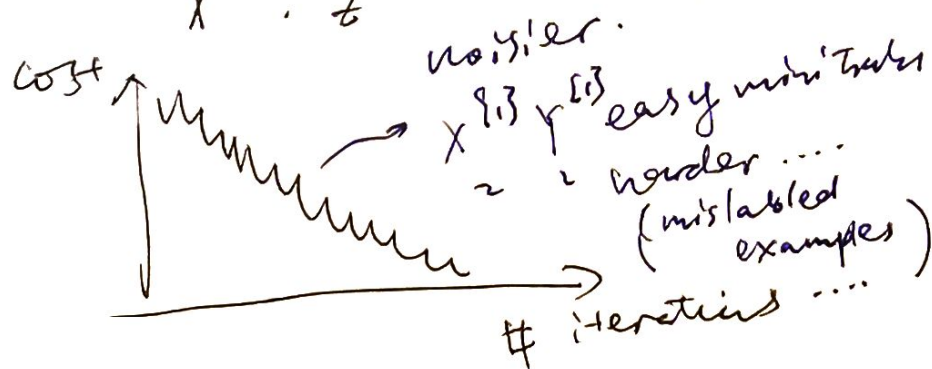 X . t
noisier.
cost
X{1} Y{1} easy minibatch
" " harder ....
(mislabled
examples)
# iterations ....